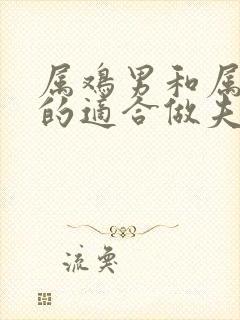 属鸡男和属
的适合做夫
流奂